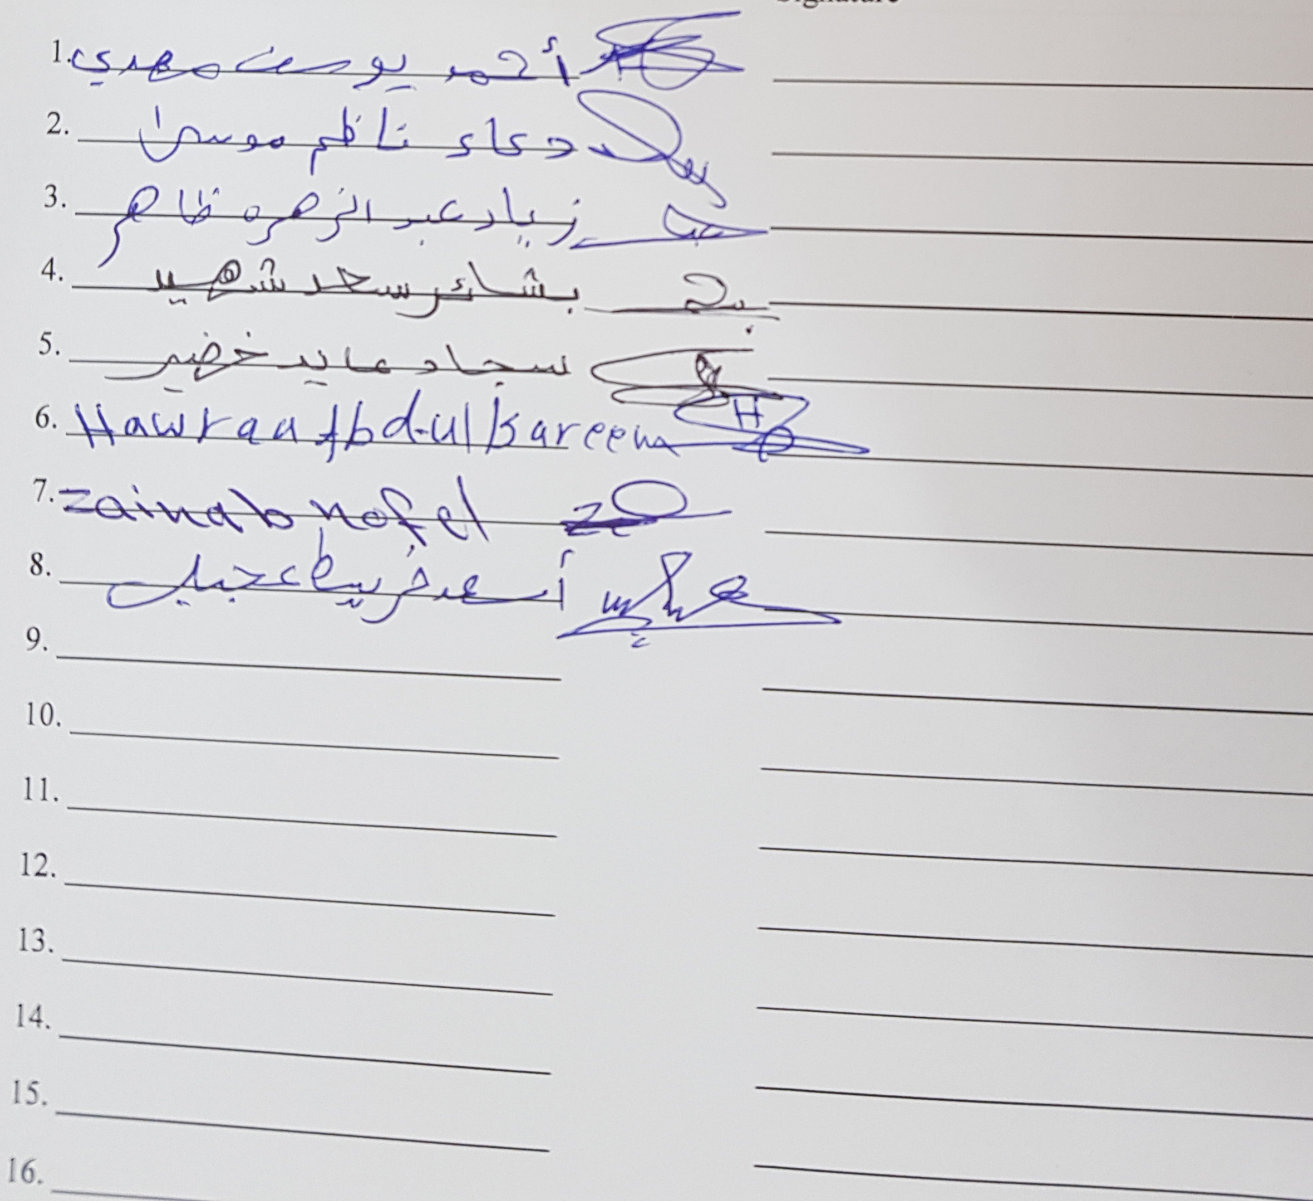 Signature
1. أحمد يوسف مهدي
2. دعاء ناظم موسى
3. زياد عبد الزهره ظاهر
4. بشائر سعد شهيد
5. سجاد عايد خضير
6. Hawraa Abdulkareem
7. zainab nofel
8. أسعد فريط عجيل
9.
10.
11.
12.
13.
14.
15.
16.